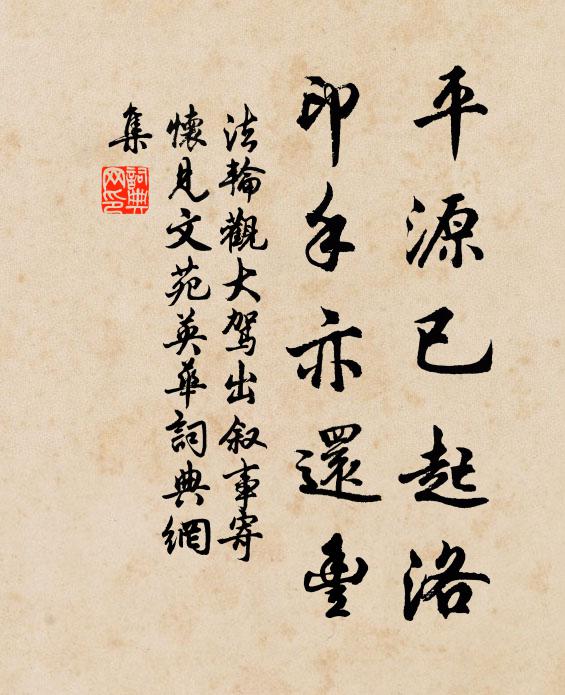 平源已起洛
印手亦還豊
法輪觀大駕出叙事寄
懷見文苑英華詞典網
集
詞典網印